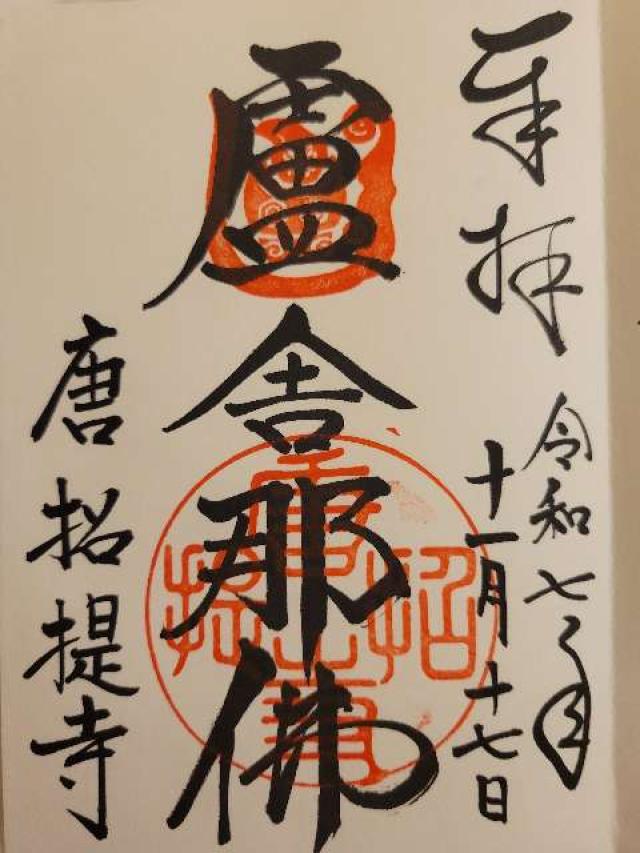 奉拝
令和七年
十一月十七日
盧舎那佛
唐招提寺